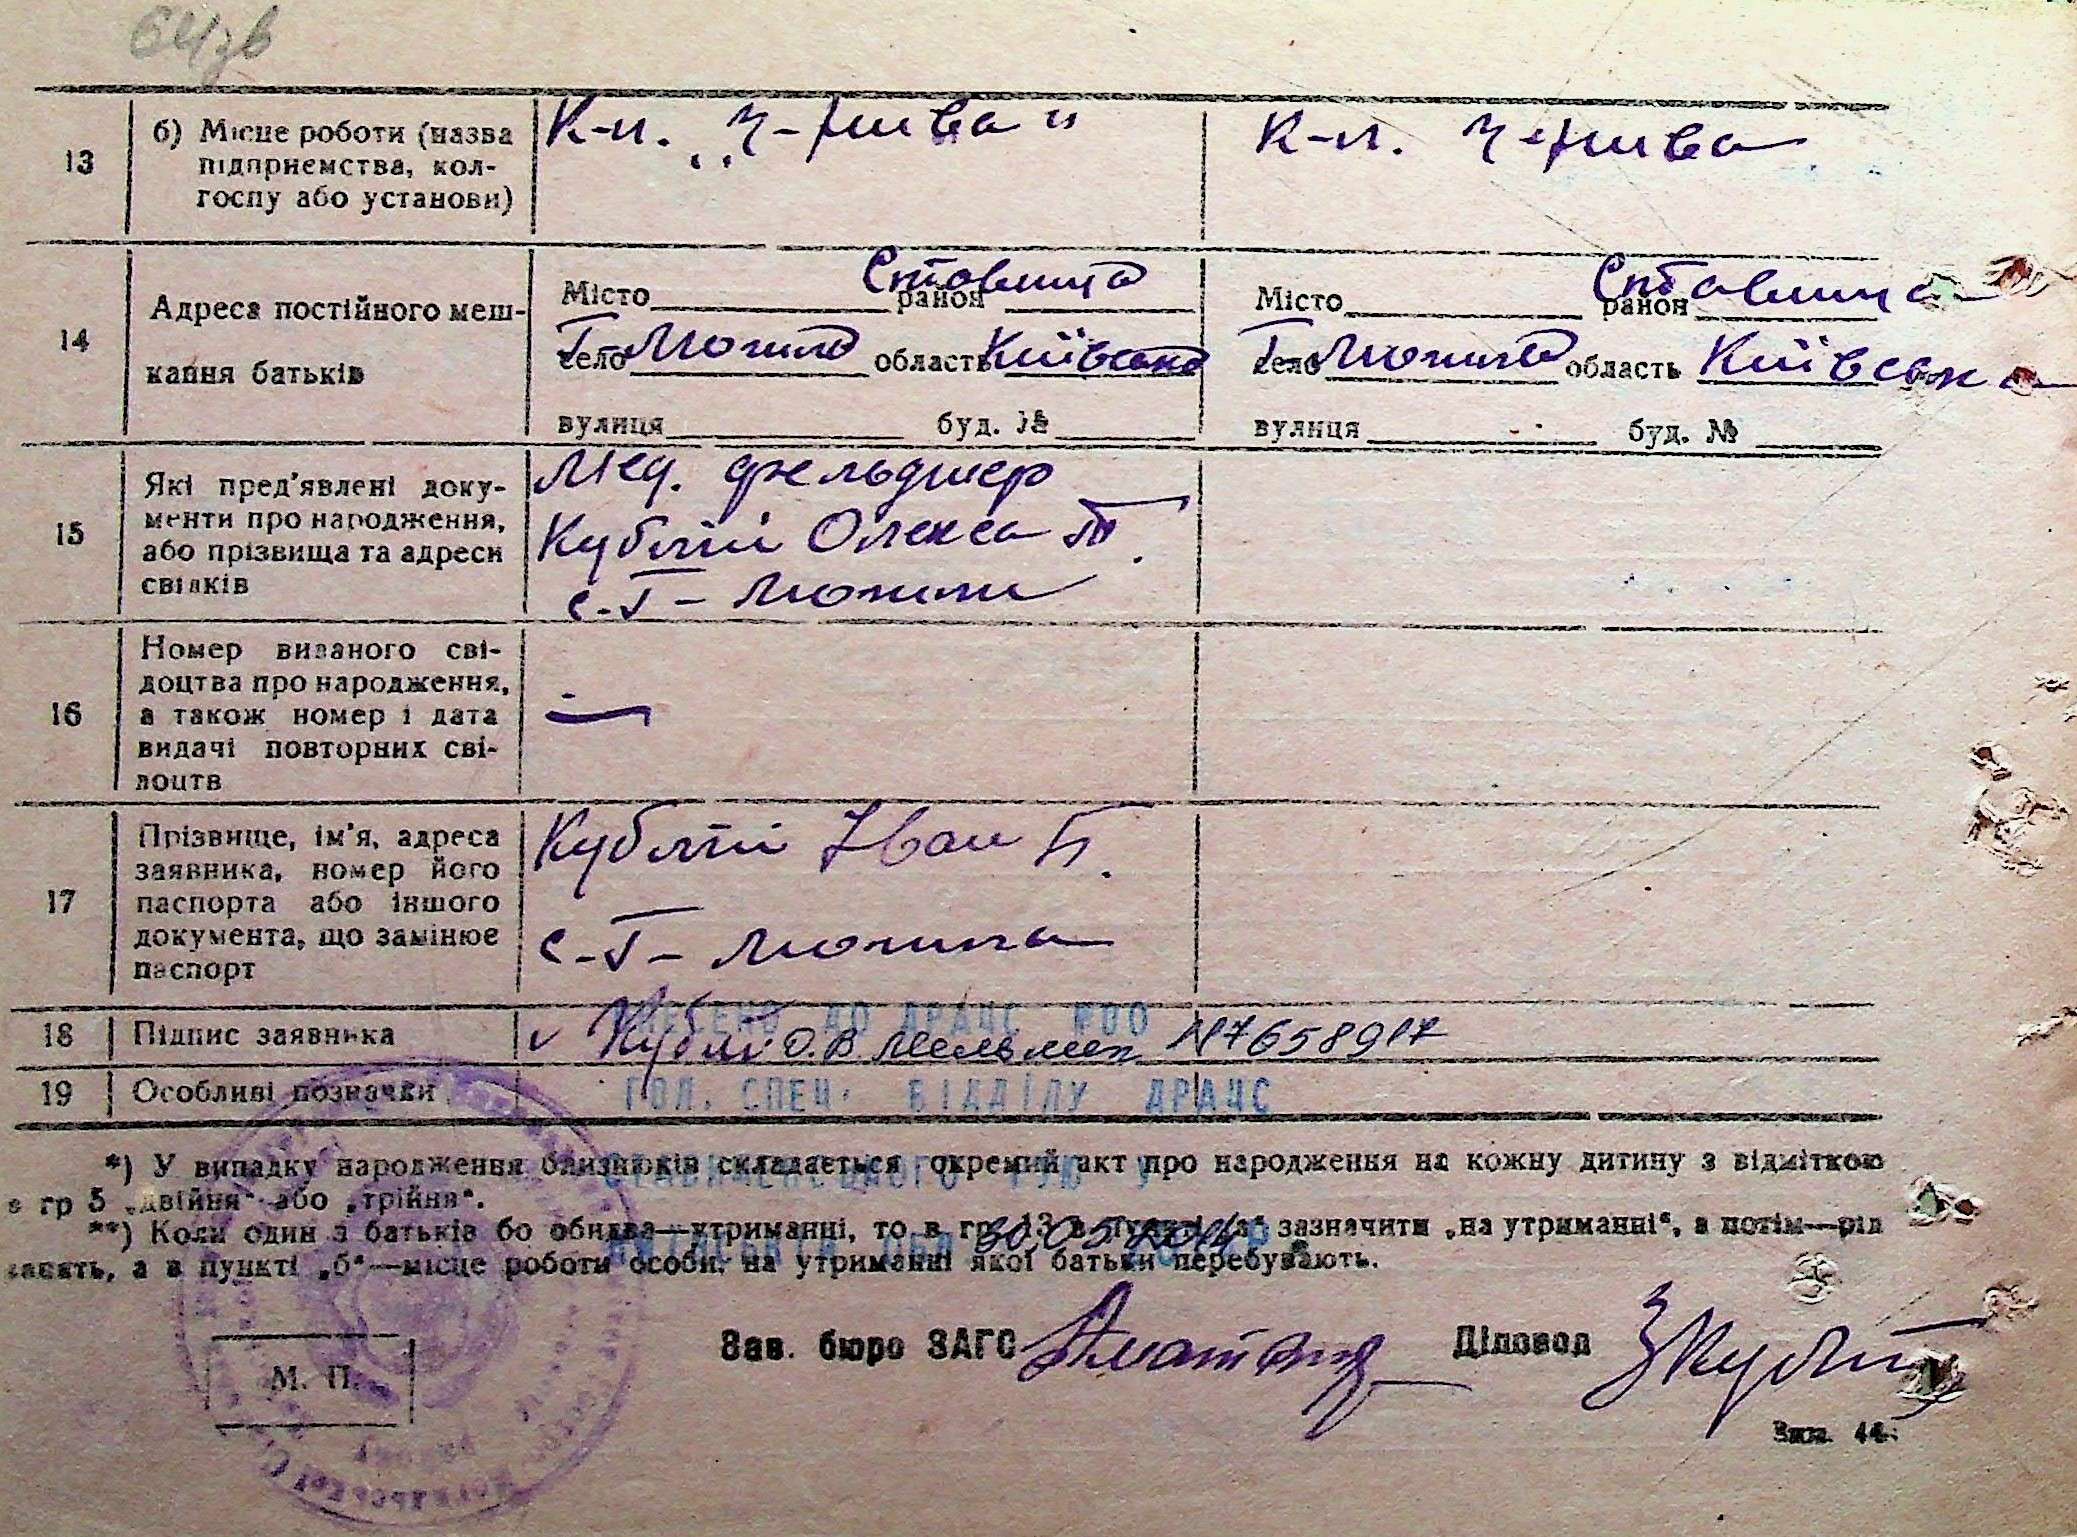 64зв
13
б) Місце роботи (назва
підприємства, кол-
госпу або установи)
К-п. „Ч-Нива"
К-п. Ч-Нива
14
Адреса постійного меш-
кання батьків
Місто район Ставища
село Г Могила область Київська
вулиця буд. №
Місто район Ставища
село Г Могила область Київська
вулиця буд. №
15
Які пред'явлені доку-
менти про народження,
або прізвища та адреси
свідків
Мед. фельдшер
Кублій Олекса
с-Г-Могили
16
Номер виданого сві-
доцтва про народження,
а також номер і дата
видачі повторних сві-
доцтв
—
17
Прізвище, ім'я, адреса
заявника, номер його
паспорта або іншого
документа, що замінює
паспорт
Кублій Іван П.
с-Г-Могила
18
Підпис заявника
ВНЕСЕНО ДО ДРАЦС
v Кублій О.В. Мельник №7658917
19
Особливі позначки
ГОЛ. СПЕЦ. ВІДДІЛУ ДРАЦС
*) У випадку народження близнюків складається окремий акт про народження на кожну дитину з відміткою
в гр 5 „двійня" або „трійня".
СТАВИЩЕНСЬКОГО РУЮ У
**) Коли один з батьків бо обидва—утриманці, то в гр. 13 в пункті „а" зазначити „на утриманні", а потім—рід
занять, а в пункті „б"—місце роботи особи, на утриманні якої батьки перебувають.
30.05
М. П.
Зав. бюро ЗАГС
Діловод ЗКублій